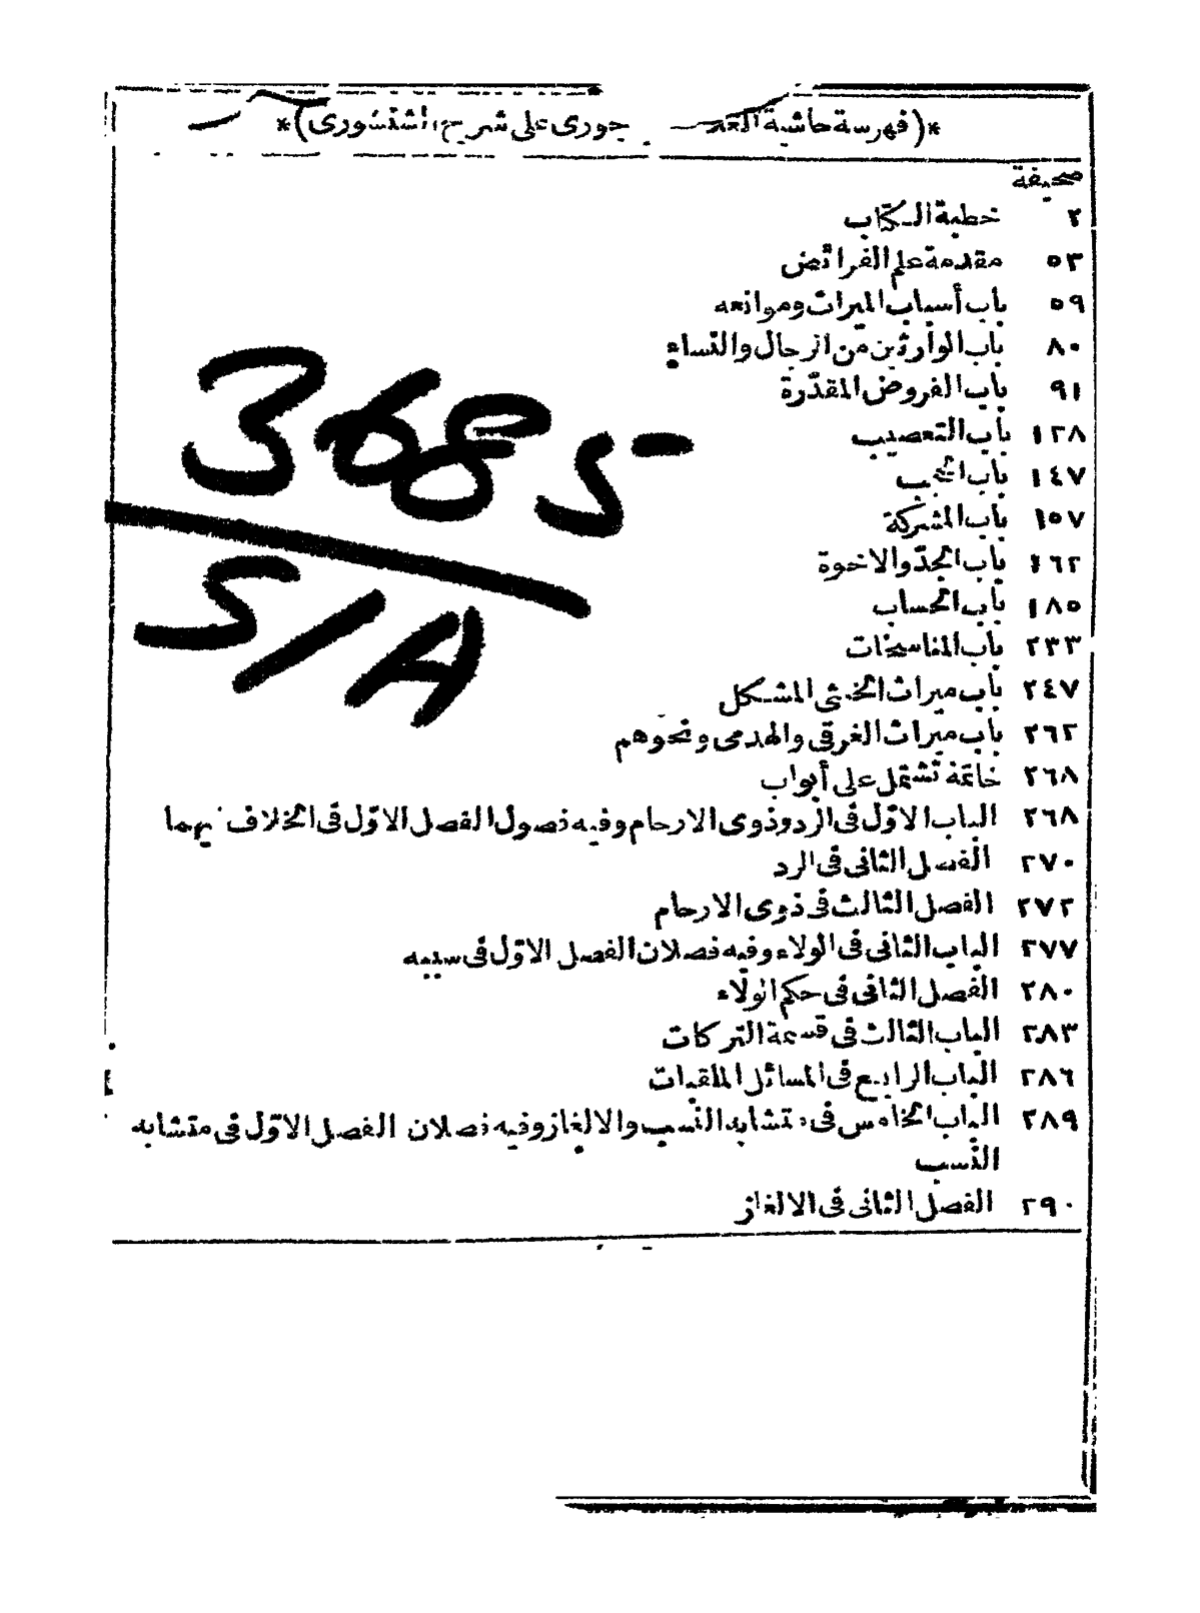 *(فهرسة حاشية ... جورى على شرح الشنشورى)*
صحيفة
٢ خطبة الكتاب
٥٣ مقدمة علم الفرائض
٥٩ باب أسباب الميراث وموانعه
٨٠ باب الوارثين من الرجال والنساء
٩١ باب الفروض المقدّرة
١٢٨ باب التعصيب
١٤٧ باب الحجب
١٥٧ باب المشركة
١٦٢ باب الجدّ والاخوة
١٨٥ باب الحساب
٢٣٣ باب المناسخات
٢٤٧ باب ميراث الخنثى المشكل
٢٦٢ باب ميراث الغرقى والهدمى ونحوهم
٢٦٨ خاتمة تشتمل على أبواب
٢٦٨ الباب الاوّل فى الرد وذوى الارحام وفيه فصول الفصل الاوّل فى الخلاف فيهما
٢٧٠ الفصل الثانى فى الرد
٢٧٢ الفصل الثالث فى ذوى الارحام
٢٧٧ الباب الثانى فى الولاء وفيه فصلان الفصل الاوّل فى سببه
٢٨٠ الفصل الثانى فى حكم الولاء
٢٨٣ الباب الثالث فى قسمة التركات
٢٨٦ الباب الرابع فى المسائل الملقبات
٢٨٩ الباب الخامس فى متشابه النسب والالغاز وفيه فصلان الفصل الاوّل فى متشابه
النسب
٢٩٠ الفصل الثانى فى الالغاز
3685
S/A